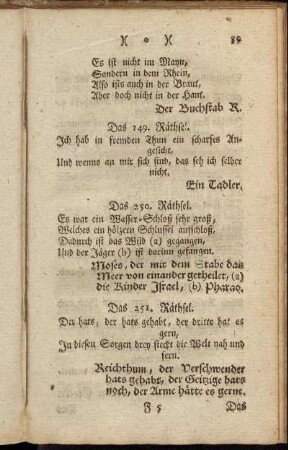 )( o )( 89
Es ist nicht im Mayn,
Sondern in dem Rhein,
Also ists auch in der Braut,
Aber doch nicht in der Haut.
Der Buchstab R.
Das 149. Räthsel.
Ich hab in fremden Thun ein scharfes An-
gesicht,
Und wenns an mir sich find, das seh ich selber
nicht.
Ein Tadler.
Das 250. Räthsel.
Es war ein Wasser-Schloß sehr groß,
Welches ein hölzern Schlüssel aufschloß,
Dadurch ist das Wild (a) gegangen,
Und der Jäger (b) ist darinn gefangen.
Moses, der mit dem Stabe das
Meer von einander getheilet, (a)
die Kinder Israel, (b) Pharao.
Das 251. Räthsel.
Der hats, der hats gehabt, der dritte hat es
gern,
In diesen Sorgen drey steckt die Welt nah und
fern.
Reichthum, der Verschwender
hats gehabt, der Geitzige hats
noch, der Arme hätte es gerne.
F 5 Das